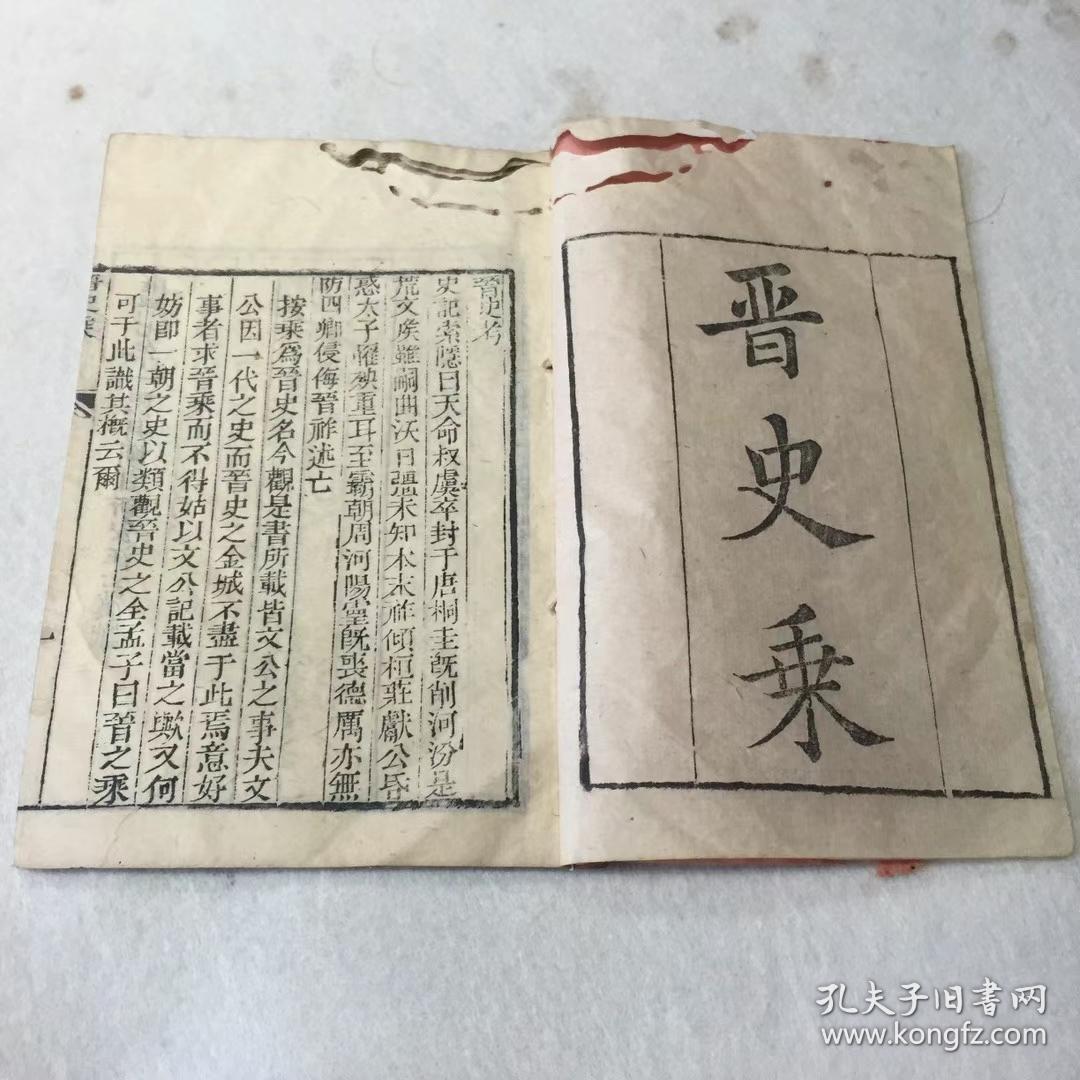 晋史乗
晉史考
史記索隱曰天命叔虞卒封于唐桐圭既削河汾是
荒文矦雖嗣曲沃日彊未知本末祚傾桓莊獻公昏
惑太子罹殃重耳至霸朝周河陽靈既喪德厲亦無
防四卿侵侮晉祚遂亡
按乘爲晉史名今觀是書所載皆文公之事夫文
公因一代之史而晉史之金城不盡于此焉意好
事者求晉乘而不得姑以文公記載當之歟又何
妨即一朝之史以類觀晉史之全孟子曰晉之乘
可于此識其概云爾
晉史乘
一
孔夫子旧书网
www.kongfz.com